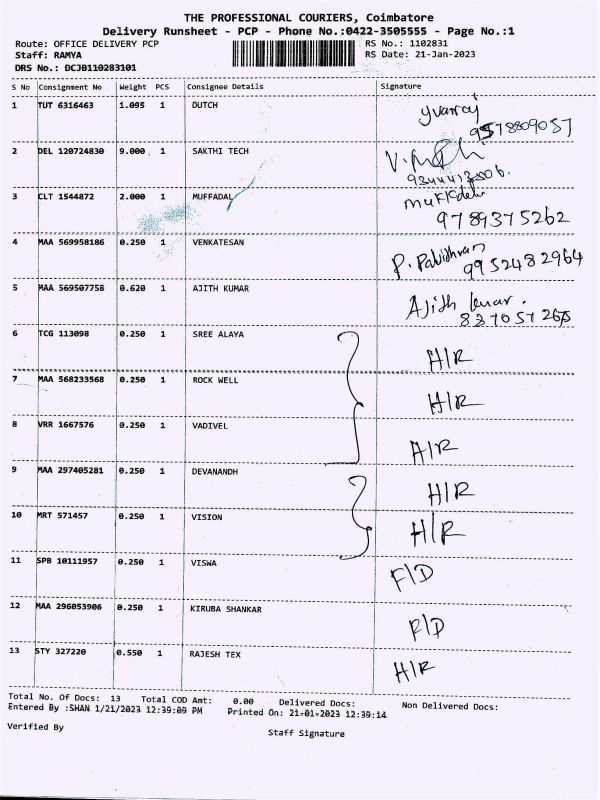 THE PROFESSIONAL COURIERS, Coimbatore
Delivery Runsheet - PCP - Phone No.:0422-3505555 - Page No.:1
Route: OFFICE DELIVERY PCP RS No.: 1102831
Staff: RAMYA RS Date: 21-Jan-2023
DRS No.: DCJB110283101
S No Consignment No Weight PCS Consignee Details Signature
1 TUT 6316463 1.095 1 DUTCH yuvaraj
9578809057
2 DEL 120724830 9.000 1 SAKTHI TECH
3 CLT 1544872 2.000 1 MUFFADAL
9789375262
4 MAA 569958186 0.250 1 VENKATESAN
9952482964
5 MAA 569507758 0.620 1 AJITH KUMAR Ajith kumar.
6 TCG 113098 0.250 1 SREE ALAYA H/R
7 MAA 568233568 0.250 1 ROCK WELL H/R
8 VRR 1667576 0.250 1 VADIVEL A/R
9 MAA 297405281 0.250 1 DEVANANDH H/R
10 MRT 571457 0.250 1 VISION H/R
11 SPB 10111957 0.250 1 VISWA F/D
12 MAA 296053906 0.250 1 KIRUBA SHANKAR R/D
13 STY 327220 0.550 1 RAJESH TEX H/R
Total No. Of Docs: 13 Total COD Amt: 0.00 Delivered Docs: Non Delivered Docs:
Entered By :SHAN 1/21/2023 12:39:09 PM Printed On: 21-01-2023 12:39:14
Verified By Staff Signature